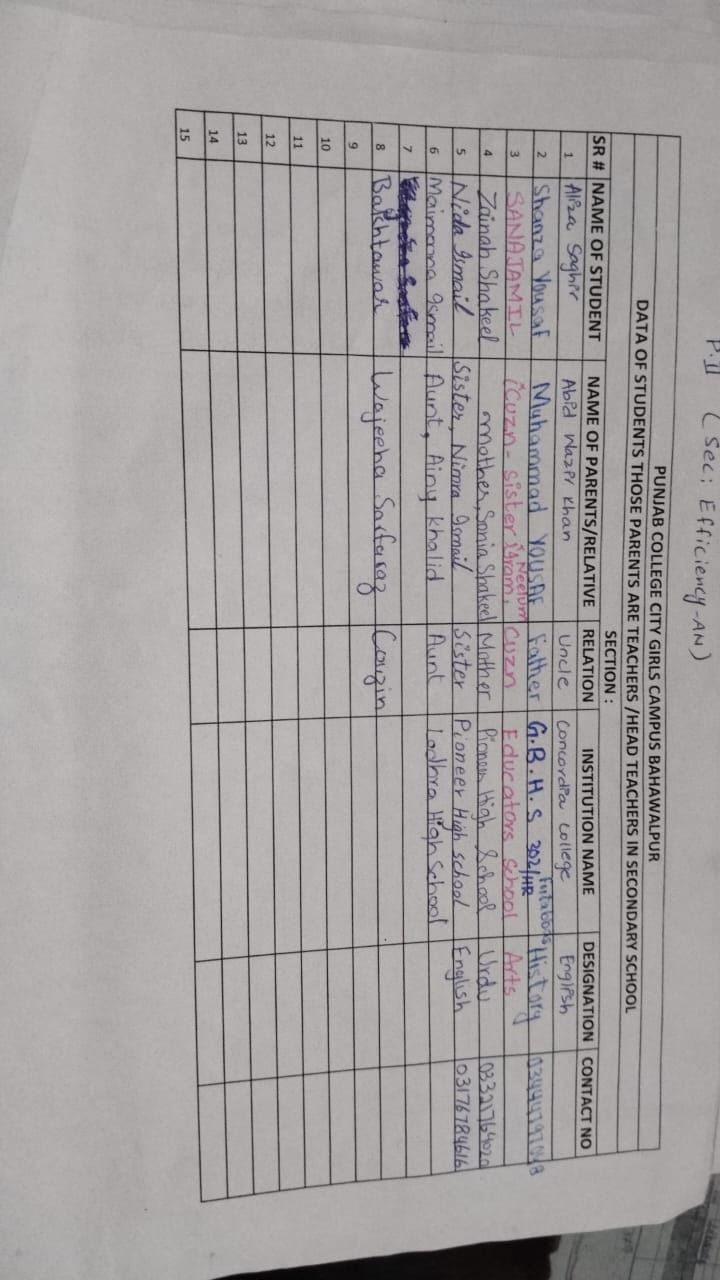 P.II (Sec: Efficiency-AN)
PUNJAB COLLEGE CITY GIRLS CAMPUS BAHAWALPUR
DATA OF STUDENTS THOSE PARENTS ARE TEACHERS /HEAD TEACHERS IN SECONDARY SCHOOL
SECTION :
SR # NAME OF STUDENT NAME OF PARENTS/RELATIVE RELATION INSTITUTION NAME DESIGNATION CONTACT NO
1 Aliza Saghir Abid Wazir Khan Uncle Concordia College English
2 Shanza Yousaf Muhammad YOUSAF Father G.B.H.S 302/HR History
3 SANA JAMIL Cuzn-Sister Neelum Cuzn Educators School Arts
4 Zainab Shakeel Mother, Sonia Shakeel Mother Pioneer High School Urdu 03321764020
5 Nida Ismail Sister, Nimra Ismail Sister Pioneer High school English 03176784616
6 Maimoona Ismail Aunt, Ainy Khalid Aunt Lodhra High School
7
8 Bakhtawar Wajeeha Sarfaraz Couzin
9
10
11
12
13
14
15